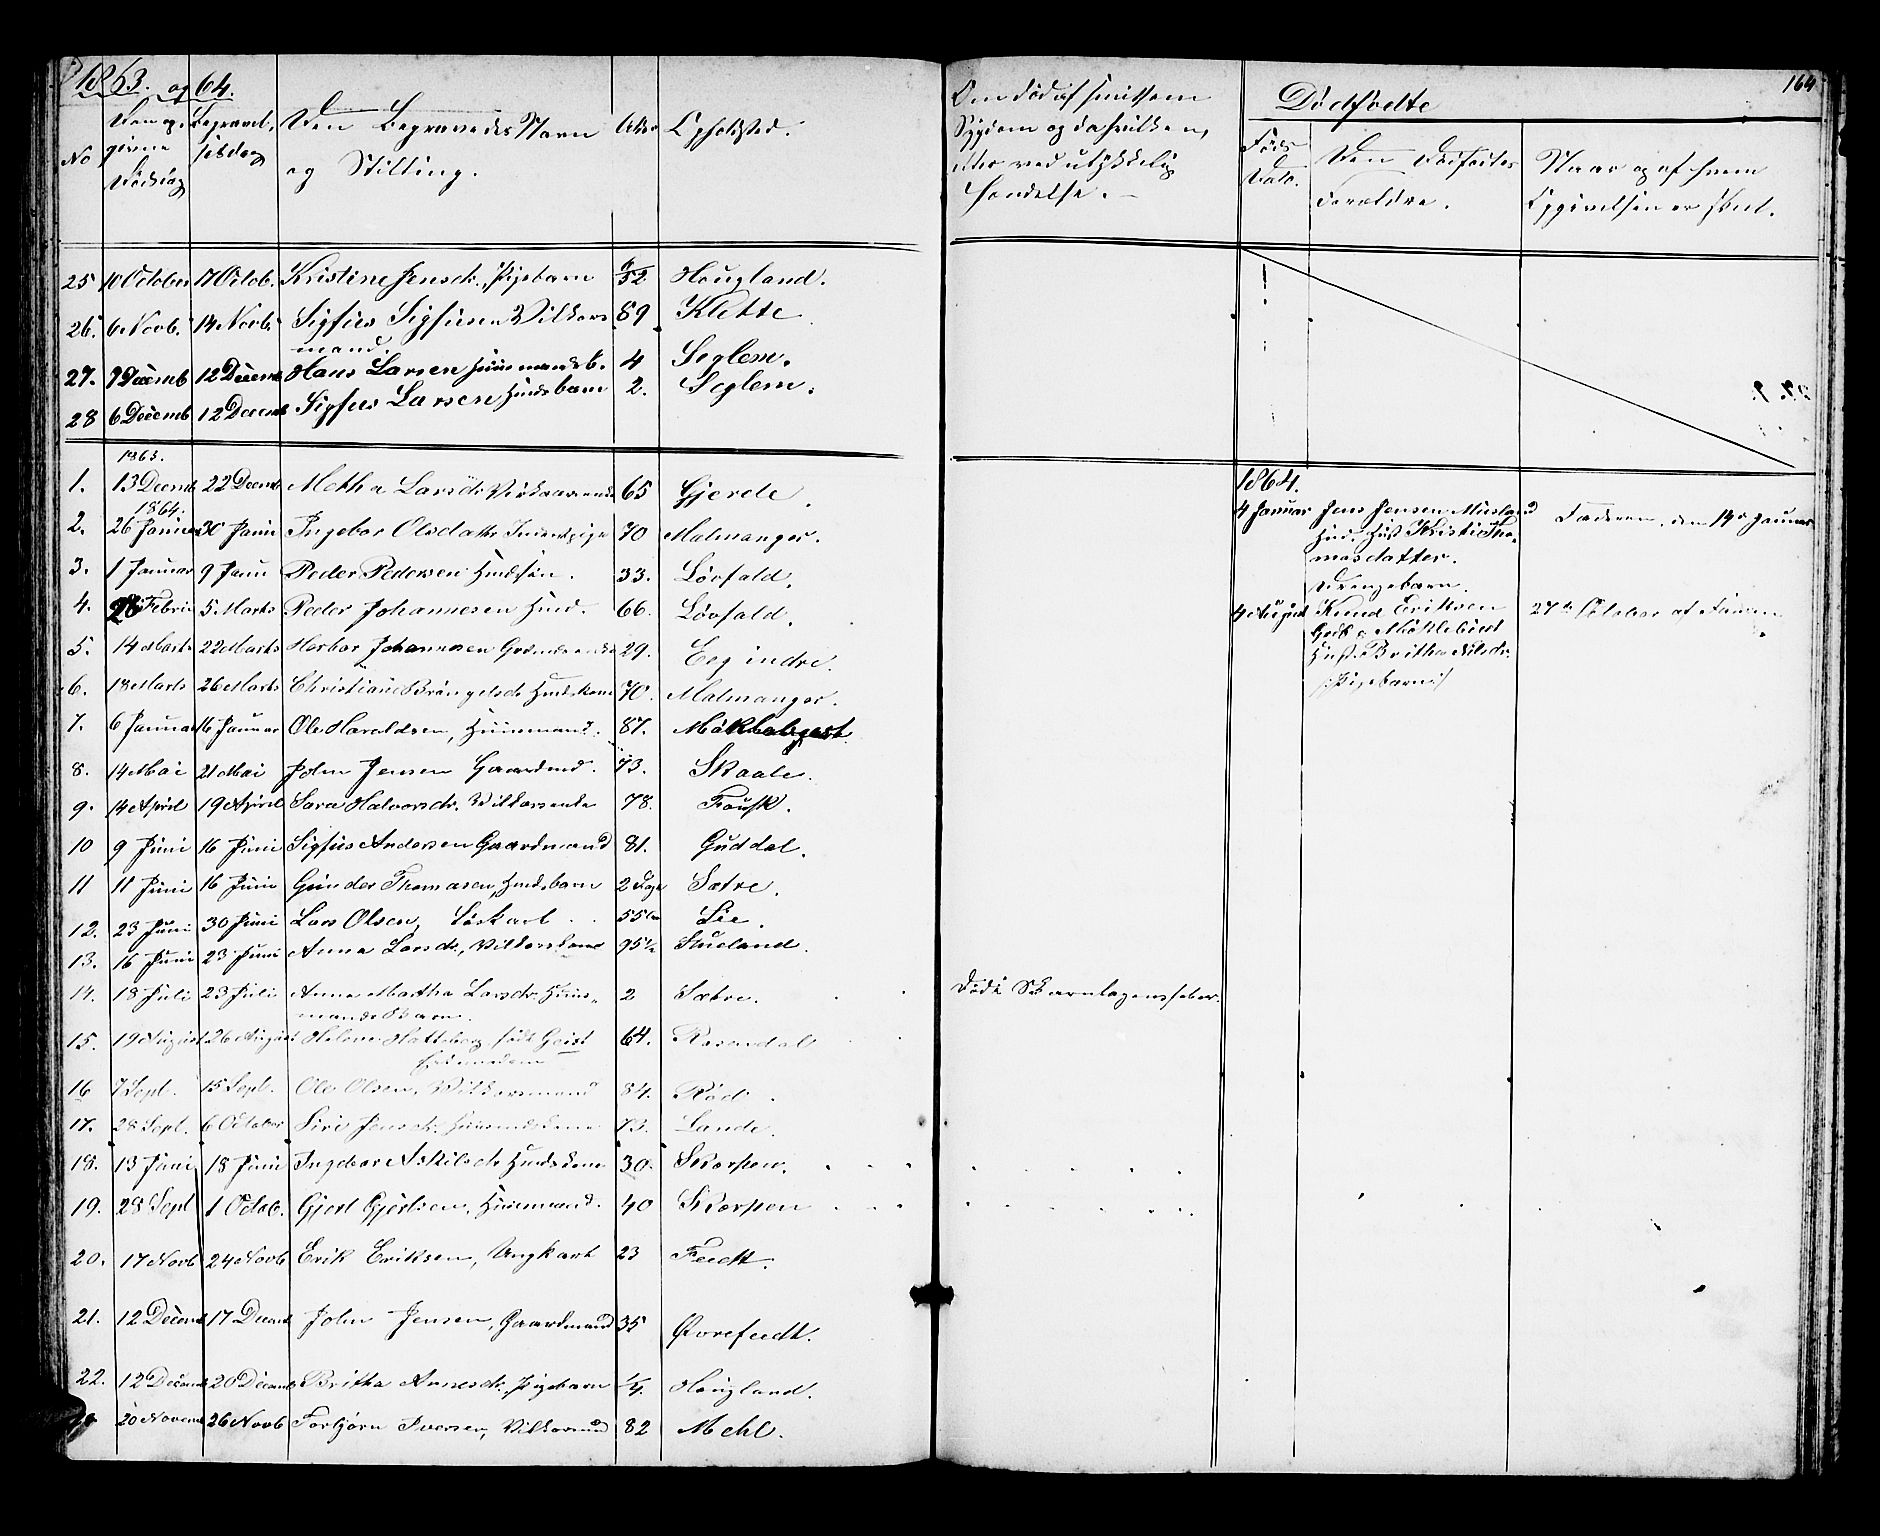 1863. og 64.
No
Den opgivne Dødsdag
Begravelsesdag
Den Begravedes Navn og Stilling.
Alder
Opholdsted.
25 10 October 17 Octob. Kristine Jensdr., Pigebarn /52 Hougland.
26. 6 Novb. 14 Novb. Sigfus Sigfusen Vilkaars 89 Klette
mand.
27. 7 Decemb 12 Decemb Hans Larsen Huusmandsb. 4 Seglem.
28 6 Decemb 12 Decemb Sigfus Larsen Husdsbarn 2. Seglem.
1863.
1. 13 Decemb 22 Decemb Metha Larsdr 65 Gjerde
1864.
2. 26 Januar 30 Janu Ingebor Olsdatter 70 Malmanger.
3. 1 Januar 9 Janu Peder Pedersen Husdsøn. 33. Løvfald.
4. 28 Febru 5 Marts Peder Johannesen Husd. 66. Løvfald.
5. 14 Marts 22 Marts Herbor Johannesen 29. Eeg indre.
6. 18 Marts 26 Marts Christiane Bryngelsdr Husdskone 70. Malmanger.
7. 6 Januar 16 Januar Ole Haraldsen, Huusmand. 87.
8. 14 Mai 21 Mai John Jensen Gaardmd. 73. Skaale.
9. 14 April 19 April Sara Halvorsdr. Vilkaarsenke 78. Fousk.
10 9 Juni 16 Juni Sigfus Andersen Gaardmand 81. Guddal.
11 11 Juni 16 Juni Gunder Thomasen, Husdsbarn 2 Dage Sætre.
12. 23 Juni 30 Juni Lars Olsen, Løskarl 55 Lie.
13. 16 Juni 23 Juni Anna Larsdr., Vilkaarskone 95½ Stueland
14. 18 Juli 23 Juli Anna Martha Larsdr. Huus- 2 Sætre.
mands Barn.
15. 19 August 26 August Helene Hatteberg født Geist 64. Rosendal
16 7 Sept. 15 Sept. Ole Olsen, Vilkaarsmand 84. Rød.
17. 28 Sept. 6 October Siri Jensdr. Huusmdskone 73. Lande.
18. 13 Juni 18 Juni Ingebor Askilsdr Husdskone 30. Skorpen.
19. 28 Sept 1 Octob. Gjert Gjertsen, Huusmand. 40 Skorpen
20. 17 Novb 24 Novb Erik Eriksen, Ungkarl 23 Feedt.
21. 12 Decemb 17 Decemb John Jensen, Gaardmand 35 Øvrefeedt.
22. 12 Decemb 20 Decemb Britha Annesdr. Pigebarn ¼ Hougland.
20 Novemb 26 Novb Torbjørn Iversen, Vilkaarsmd 82 Mehl.
164
Om død af smitsom
Sygdom og da hvilken,
eller ved ulykkelig
Hændelse.
Dødfødte
Føds Dato.
Den Dødfødtes Forældre.
Naar og af hvem Opgivelsen er skeet.
1864.
4 Januar Jens Jensen
Husd. Hust. Kristi Tho-
masdatter.
Drengebarn.
Faderen, den 14de Januar
4 August Knud Eriksen
Hust. Britha Nilsdr.
/:Pigebarn:/
27de October af Faderen
Død i Skarnlagensfeber.